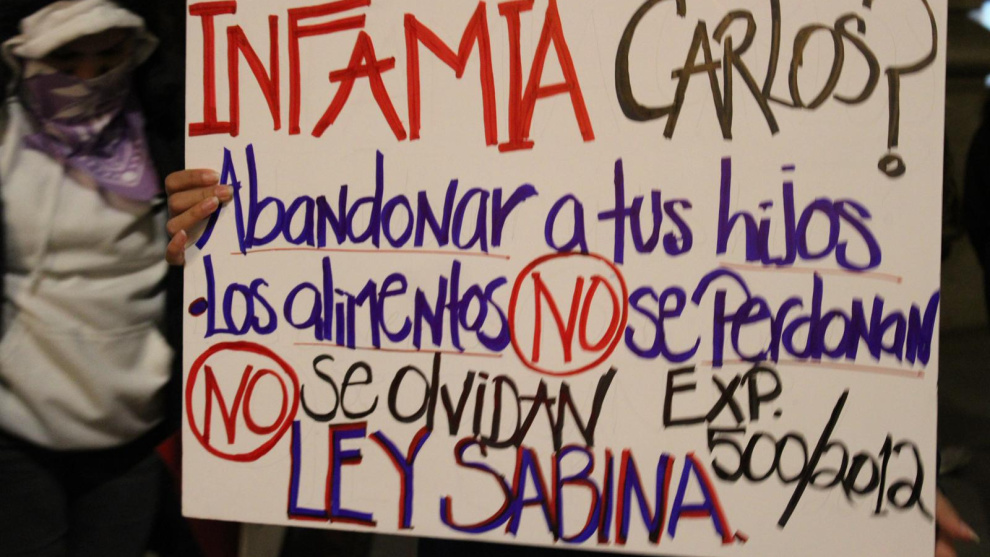 INFAMIA CARLOS?
Abandonar a tus hijos
•Los alimentos NO se Perdonan
NO Se olvidan EXP.
LEY SABINA. 500/2012